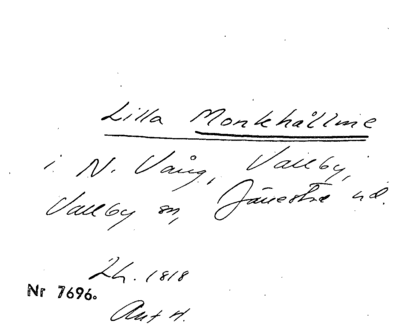 Lilla Monkhållme
i N. Vång, Vallby,
Vallby sn, Järrestads hd.
Lh. 1818
Nr 7696.
Ant H.